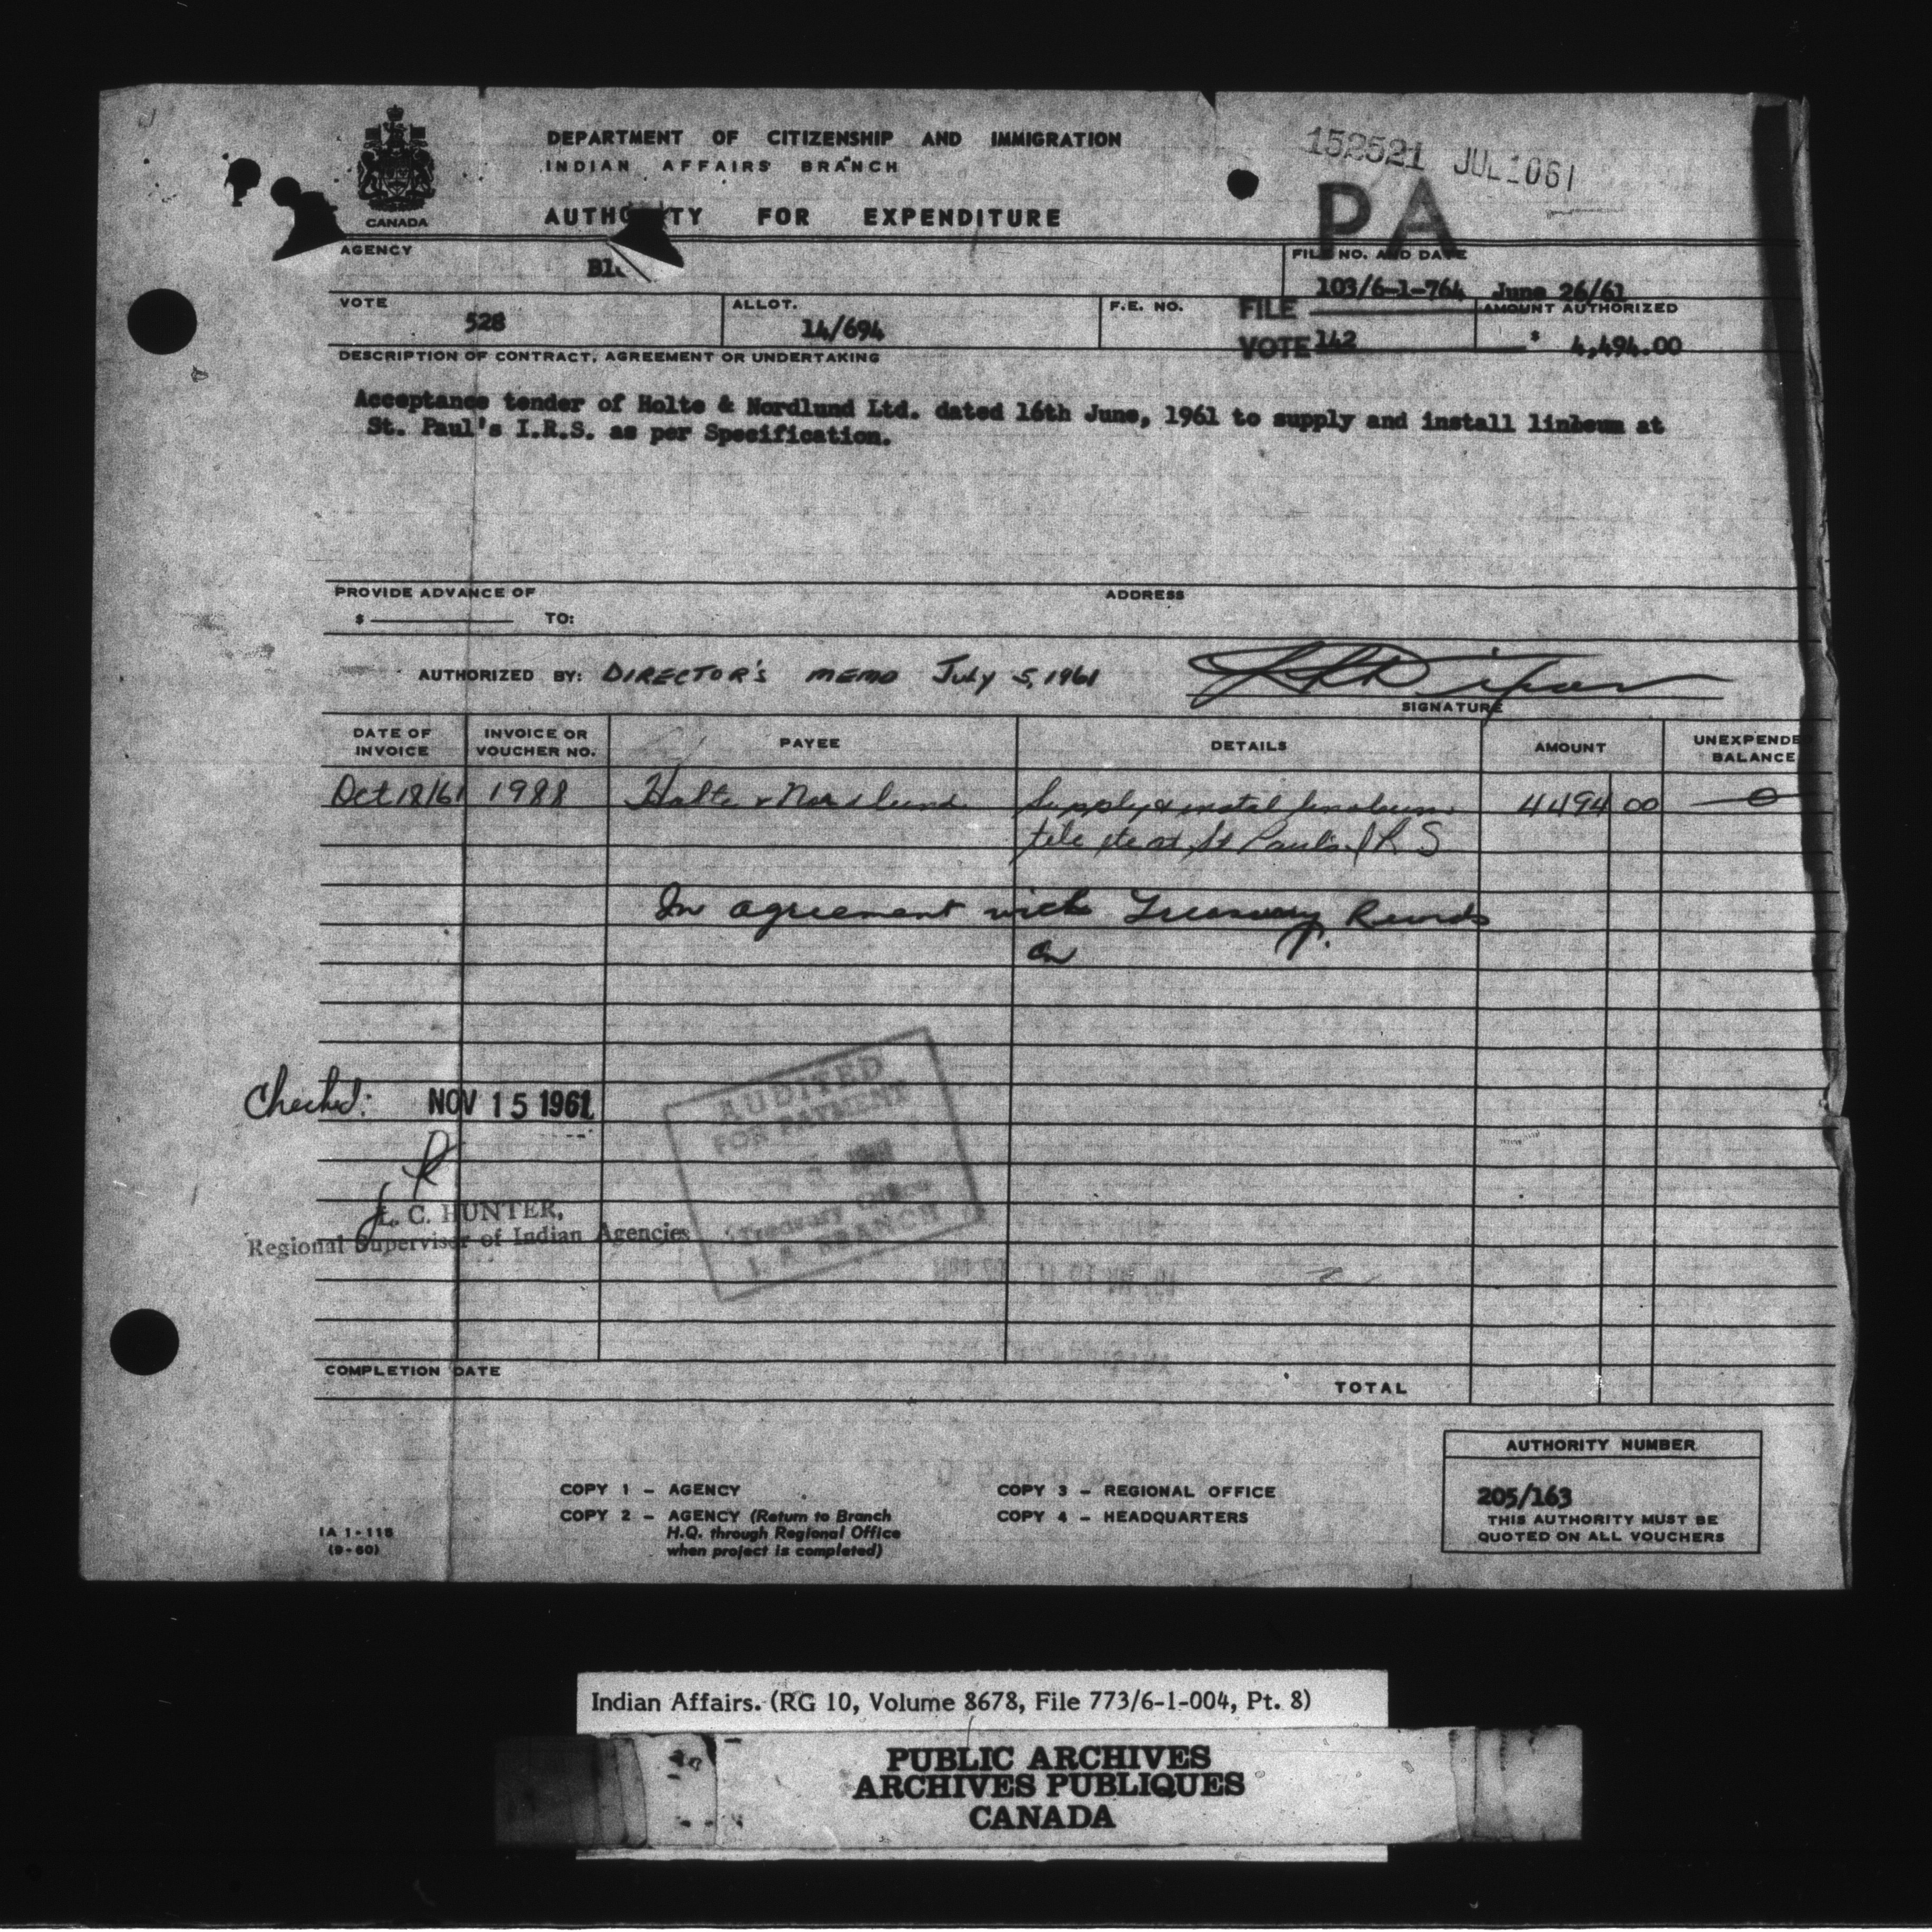 DEPARTMENT OF CITIZENSHIP AND IMMIGRATION
INDIAN AFFAIRS BRANCH
CANADA
AUTHO TY FOR EXPENDITURE
152521 JUL 10 61
PA
AGENCY
Bl
FILE NO. AND DATE
103/6-1-764 June 26/61
VOTE
528
ALLOT.
14/694
F.E. NO.
FILE
VOTE 142
AMOUNT AUTHORIZED
$ 4,494.00
DESCRIPTION OF CONTRACT, AGREEMENT OR UNDERTAKING
Acceptance tender of Holte & Nordlund Ltd. dated 16th June, 1961 to supply and install linoeum at
St. Paul's I.R.S. as per Specification.
PROVIDE ADVANCE OF
$ TO:
ADDRESS
AUTHORIZED BY: DIRECTOR'S MEMO July 5, 1961
SIGNATURE
DATE OF INVOICE
INVOICE OR VOUCHER NO.
PAYEE
DETAILS
AMOUNT
UNEXPENDE BALANCE
Oct 18/61 1988 Holte & Nordlund Supply & instal linoleum 4494 00 0
tile etc at St Paul's I R S
In agreement with Treasury Records
Checked: NOV 15 1961
AUDITED
FOR PAYMENT
Treasury Office
I. A. BRANCH
L. C. HUNTER,
Regional Supervisor of Indian Agencies
COMPLETION DATE
TOTAL
AUTHORITY NUMBER
205/163
THIS AUTHORITY MUST BE
QUOTED ON ALL VOUCHERS
COPY 1 - AGENCY
COPY 2 - AGENCY (Return to Branch
H.Q. through Regional Office
when project is completed)
COPY 3 - REGIONAL OFFICE
COPY 4 - HEADQUARTERS
IA 1-118
(9-60)
Indian Affairs. (RG 10, Volume 8678, File 773/6-1-004, Pt. 8)
PUBLIC ARCHIVES
ARCHIVES PUBLIQUES
CANADA